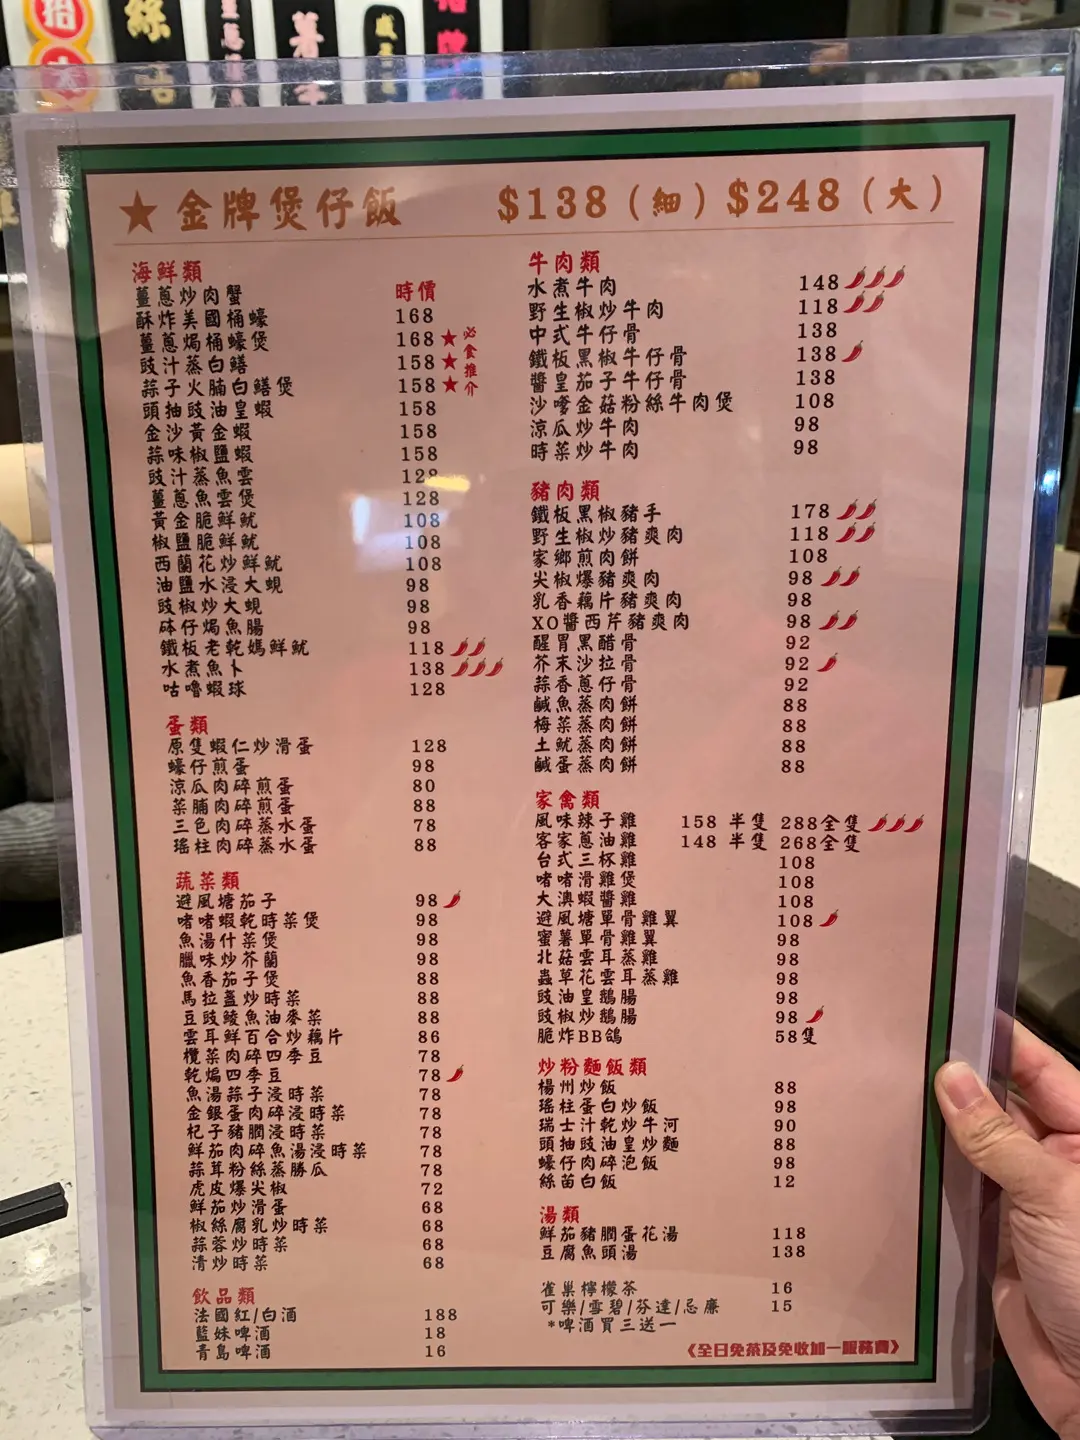 ★金牌煲仔飯 $138（細）$248（大）
海鮮類
薑蔥炒肉蟹 時價
酥炸美國桶蠔 168
薑蔥焗桶蠔煲 168★
豉汁蒸白鱔 158★
蒜子火腩白鱔煲 158★
必食推介
頭抽豉油皇蝦 158
金沙黃金蝦 158
蒜味椒鹽蝦 158
豉汁蒸魚雲 128
薑蔥魚雲煲 128
黃金脆鮮魷 108
椒鹽脆鮮魷 108
西蘭花炒鮮魷 108
油鹽水浸大蜆 98
豉椒炒大蜆 98
砵仔焗魚腸 98
鐵板老乾媽鮮魷 118
水煮魚卜 138
咕嚕蝦球 128
蛋類
原隻蝦仁炒滑蛋 128
蠔仔煎蛋 98
涼瓜肉碎煎蛋 80
菜脯肉碎煎蛋 88
三色肉碎蒸水蛋 78
瑤柱肉碎蒸水蛋 88
蔬菜類
避風塘茄子 98
啫啫蝦乾時菜煲 98
魚湯什菜煲 98
臘味炒芥蘭 98
魚香茄子煲 88
馬拉盞炒時菜 88
豆豉鯪魚油麥菜 88
雲耳鮮百合炒藕片 86
欖菜肉碎四季豆 78
乾煸四季豆 78
魚湯蒜子浸時菜 78
金銀蛋肉碎浸時菜 78
杞子豬膶浸時菜 78
鮮茄肉碎魚湯浸時菜 78
蒜茸粉絲蒸勝瓜 78
虎皮爆尖椒 72
鮮茄炒滑蛋 68
椒絲腐乳炒時菜 68
蒜蓉炒時菜 68
清炒時菜 68
飲品類
法國紅/白酒 188
藍妹啤酒 18
青島啤酒 16
牛肉類
水煮牛肉 148
野生椒炒牛肉 118
中式牛仔骨 138
鐵板黑椒牛仔骨 138
醬皇茄子牛仔骨 138
沙嗲金菇粉絲牛肉煲 108
涼瓜炒牛肉 98
時菜炒牛肉 98
豬肉類
鐵板黑椒豬手 178
野生椒炒豬爽肉 118
家鄉煎肉餅 108
尖椒爆豬爽肉 98
乳香藕片豬爽肉 98
XO醬西芹豬爽肉 98
醒胃黑醋骨 92
芥末沙拉骨 92
蒜香蔥仔骨 92
鹹魚蒸肉餅 88
梅菜蒸肉餅 88
土魷蒸肉餅 88
鹹蛋蒸肉餅 88
家禽類
風味辣子雞 158 半隻 288全隻
客家蔥油雞 148 半隻 268全隻
台式三杯雞 108
啫啫滑雞煲 108
大澳蝦醬雞 108
避風塘單骨雞翼 108
蜜薯單骨雞翼 98
北菇雲耳蒸雞 98
蟲草花雲耳蒸雞 98
豉油皇鵝腸 98
豉椒炒鵝腸 98
脆炸BB鴿 58隻
炒粉麵飯類
楊州炒飯 88
瑤柱蛋白炒飯 98
瑞士汁乾炒牛河 90
頭抽豉油皇炒麵 88
蠔仔肉碎泡飯 98
絲苗白飯 12
湯類
鮮茄豬膶蛋花湯 118
豆腐魚頭湯 138
雀巢檸檬茶 16
可樂/雪碧/芬達/忌廉 15
*啤酒買三送一
《全日免茶及免收加一服務費》